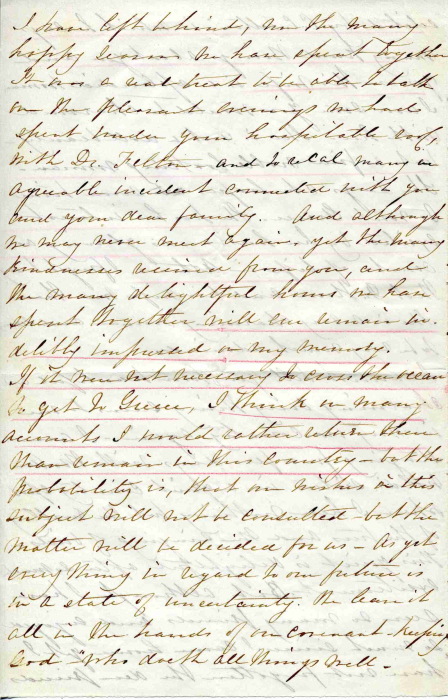 I have left behind, nor the many
happy seasons we have spent together
It was a real treat to be able to talk
on the pleasant evenings we had
spent under your hospitable roof,
with Dr. Felton and to recal many an
agreeable incident connected with you
and your dear family. And although
we may never meet again, yet the many
kindnesses received from you, and
the many delightful hours we have
spent together, will ever remain in-
delibly impressed on my memory.
If it were not necessary to cross the ocean
to get to Greece, I think on many
accounts I would rather return there
than remain in this country - but the
probability is, that our wishes on this
subject will not be consulted but the
matter will be decided for us - As yet
every thing in regard to our future is
in a state of uncertainty. We leave it
all in the hands of our covenant-keeping
God - "who doeth all things well -